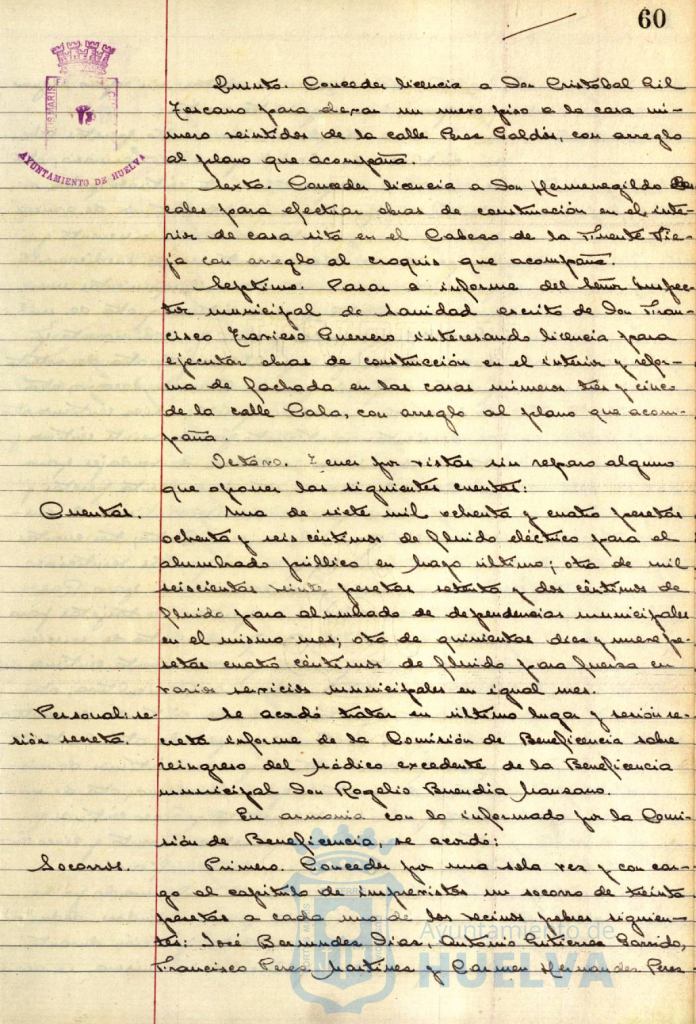 60
AYUNTAMIENTO DE HUELVA
Quinto. Conceder licencia a Don Cristóbal Gil
Toscano para elevar un nuevo piso a la casa nú-
mero veintidos de la calle Perez Galdós, con arreglo
al plano que acompaña.
Sexto. Conceder licencia a Don Hermenegildo
cales para efectuar obras de construcción en el inte-
rior de casa sita en el Cabezo de la Fuente Vie-
ja con arreglo al croquis que acompaña.
Septimo. Pasar a informe del Señor Inspec-
tor municipal de Sanidad escrito de Don Fran-
cisco Travieso Guerrero interesando licencia para
ejecutar obras de construcción en el interior y refor-
ma de fachada en las casas números tres y cinco
de la calle Cala, con arreglo al plano que acom-
paña.
Octavo. Tener por vistas sin reparo alguno
que oponer las siguientes cuentas:
Cuentas.
Una de siete mil ochenta y cuatro pesetas
ochenta y seis céntimos de fluido eléctrico para el
alumbrado público en Mayo último; otra de mil
seiscientas veinte pesetas setenta y dos céntimos de
fluido para alumbrado de dependencias municipales
en el mismo mes; otra de quinientas diez y nueve pe-
setas cuatro céntimos de fluido para fuerza en
varios servicios municipales en igual mes.
Personal: se-
sión secreta.
Se acordó tratar en último lugar y sesión se-
creta informe de la Comisión de Beneficencia sobre
reingreso del Médico excedente de la Beneficencia
municipal Don Rogelio Buendia Manzano.
En armonia con lo informado por la Comi-
sión de Beneficencia, se acordó:
Socorros.
Primero. Conceder por una sola vez y con car-
go al capitulo de imprevistos un socorro de treinta
pesetas a cada uno de los vecinos pobres siguien-
tes: José Bermudez Dias, Antonio Gutierrez Garrido,
Francisco Perez Martinez y Carmen Hernandez Perez
Ayuntamiento de
HUELVA